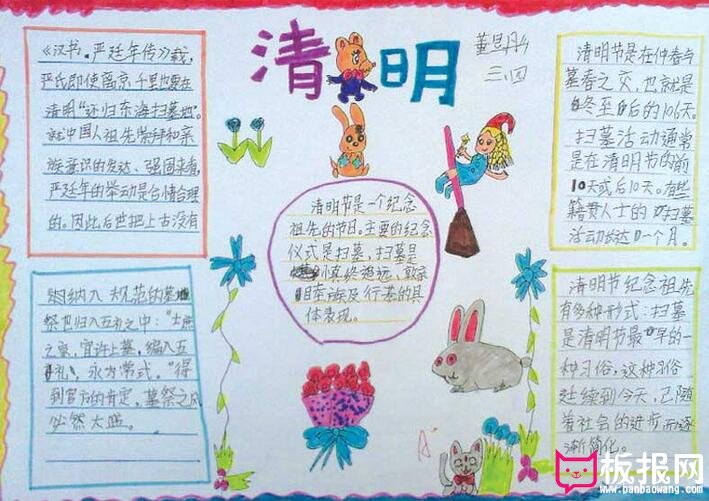 清明
董昱彤
三.四
《汉书。严延年传》载，
严氏即使离京千里也要在
清明"还归东海扫墓地"。
就中国人祖先崇拜和亲
族意识的发达、强固来看，
严廷年的举动是合情合理
的。因此后世把上古没有
纳入规范的墓
祭也归入五礼之中："士庶
之家，宜许上墓，编入五
礼，永为常式。"得
到官方的肯定，墓祭之风
必然大盛。
清明节是一个纪念
祖先的节日。主要的纪念
仪式是扫墓，扫墓是
慎终追远、敦亲
睦族及行孝的具
体表现。
清明节是在仲春与
暮春之交，也就是
冬至后的106天。
扫墓活动通常
是在清明节的前
10天或后10天。有些
籍贯人士的扫墓
活动长达一个月。
清明节纪念祖先
有多种形式：扫墓
是清明节最早的一
种习俗，这种习俗
延续到今天，已随
着社会的进步而逐
渐简化。
A
板报网
www.banbaowang.com